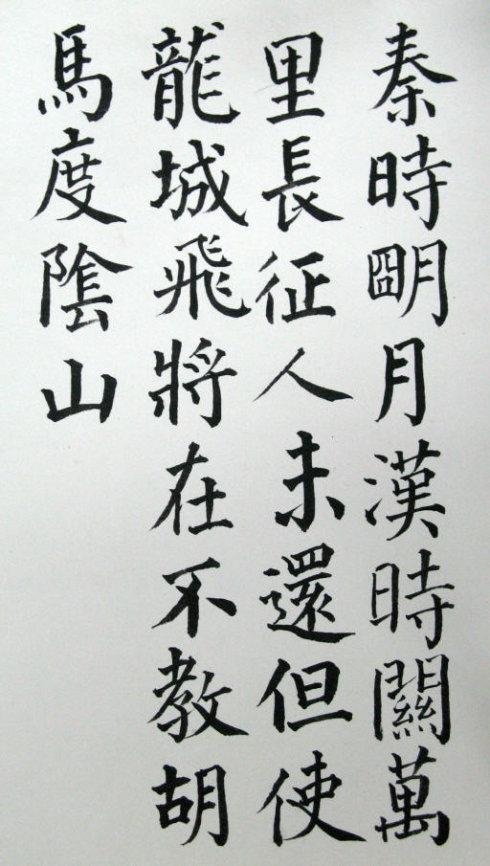 秦時朙月漢時關萬
里長征人未還但使
龍城飛將在不教胡
馬度陰山